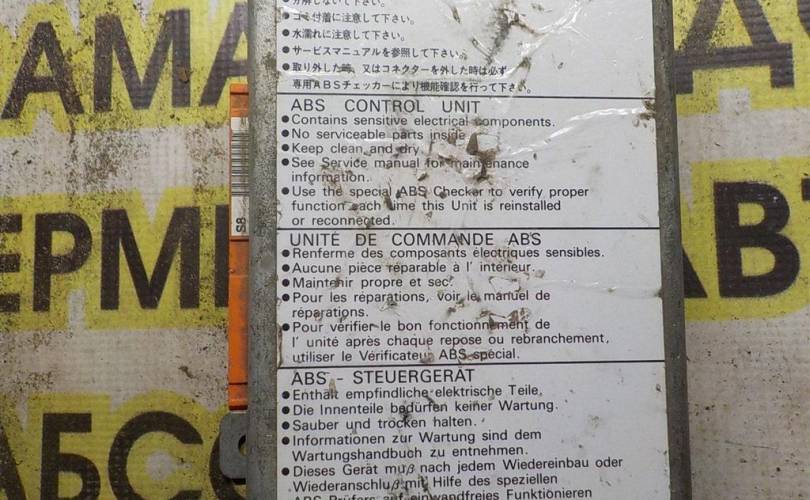 分解しないて下さい。
●ゴミ付着に注意して下さい。
●水濡れに注意して下さい。
●サービスマニュアルを参照して下さい。
●取り外した時、又はコネクターを外した時は必ず
専用ABSチェッカーにより機能確認を行って下さい。
ABS CONTROL UNIT
●Contains sensitive electrical components.
●No serviceable parts inside
●Keep clean and dry
●See Service manual for maintenance
information.
●Use the special ABS Checker to verify proper
function each time this Unit is reinstalled
or reconnected.
UNITÉ DE COMMANDE ABS
●Renferme des composants électriques sensibles.
●Aucune pièce réparable à l' intérieur.
●Maintenir propre et sec.
●Pour les réparations, voir le manuel de
réparations.
●Pour vérifier le bon fonctionnement de
l' unité après chaque repose ou rebranchement,
utiliser le Vérificateur ABS spécial.
ABS - STEUERGERÄT
●Enthält empfindliche elektrische Teile.
●Die Innenteile bedürfen keiner Wartung.
●Sauber und trocken halten.
●Informationen zur Wartung sind dem
Wartungshandbuch zu entnehmen.
●Dieses Gerät muß nach jedem Wiedereinbau oder
Wiederanschluß mit Hilfe des speziellen
ABS Prüfers auf einwandfreies Funktionieren
S8
АМА
ЕРМ
АБС
АВ